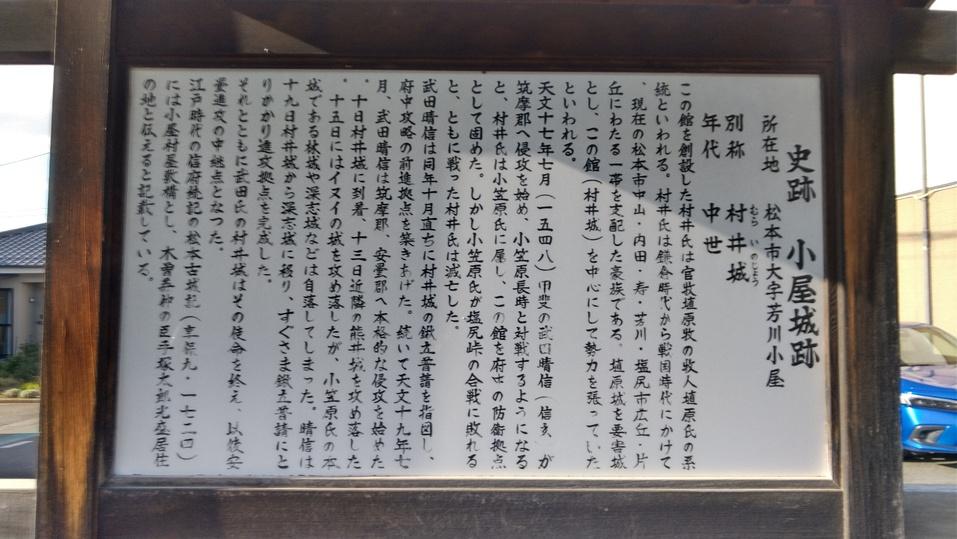 史跡 小屋城跡
所在地 松本市大字芳川小屋
別称 村井城
むら いのじょう
年代 中世
この館を創設した村井氏は官牧埴原牧の牧人埴原氏の系
統といわれる。村井氏は鎌倉時代から戦国時代にかけて
、現在の松本市中山・内田・寿・芳川・塩尻市広丘・片
丘にわたる一帯を支配した豪族である。埴原城を要害城
とし、この館(村井城)を中心にして勢力を張っていた
といわれる。
天文十七年七月(一五四八)甲斐の武田晴信(信玄 が
筑摩郡へ侵攻を始め、小笠原長時と対戦するようになる
と、村井氏は小笠原氏に属し、この館を府中の防衛拠点
として固めた。しかし小笠原氏が塩尻峠の合戦に敗れる
と、ともに戦った村井氏は滅亡した。
武田晴信は同年十月直ちに村井城の鍬立普請を指図し、
府中攻略の前進拠点を築きあげた。続いて天文十九年七
月、武田晴信は筑摩郡、安曇郡へ本格的な侵攻を始めた
。十日村井城に到着 十三日近隣の熊井城を攻め落した
。十五日にはイヌイの城を攻め落したが、小笠原氏の本
城である林城や深志城などは自落してしまった。晴信は
十九日村井城から深志城に移り、すぐさま鍬立普請にと
りかかり進攻拠点を完成した。
それとともに武田氏の村井城はその使命を終え、以後安
曇進攻の中継点となつた。
江戸時代の信府統記の松本古城記(享保九・一七二四)
には小屋村屋敷構とし、木曽義仲の臣手塚太郎光盛居住
の地と伝えると記載している。